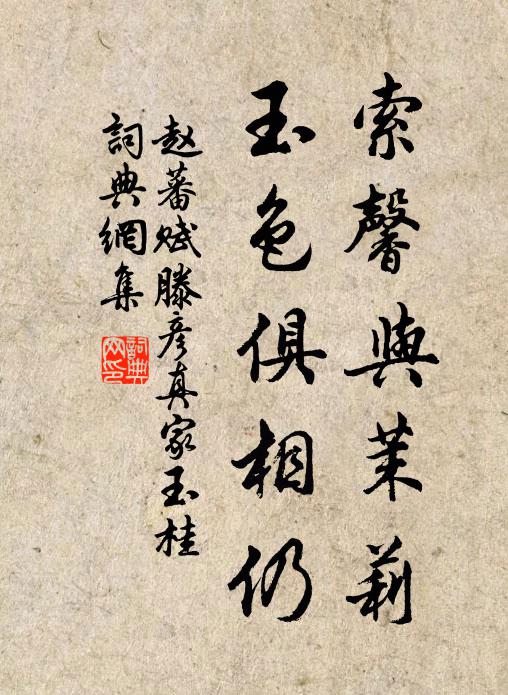 索馨與茉莉
玉色俱相仍
趙蕃賦滕彥真家玉桂
詞典網集
詞典网印